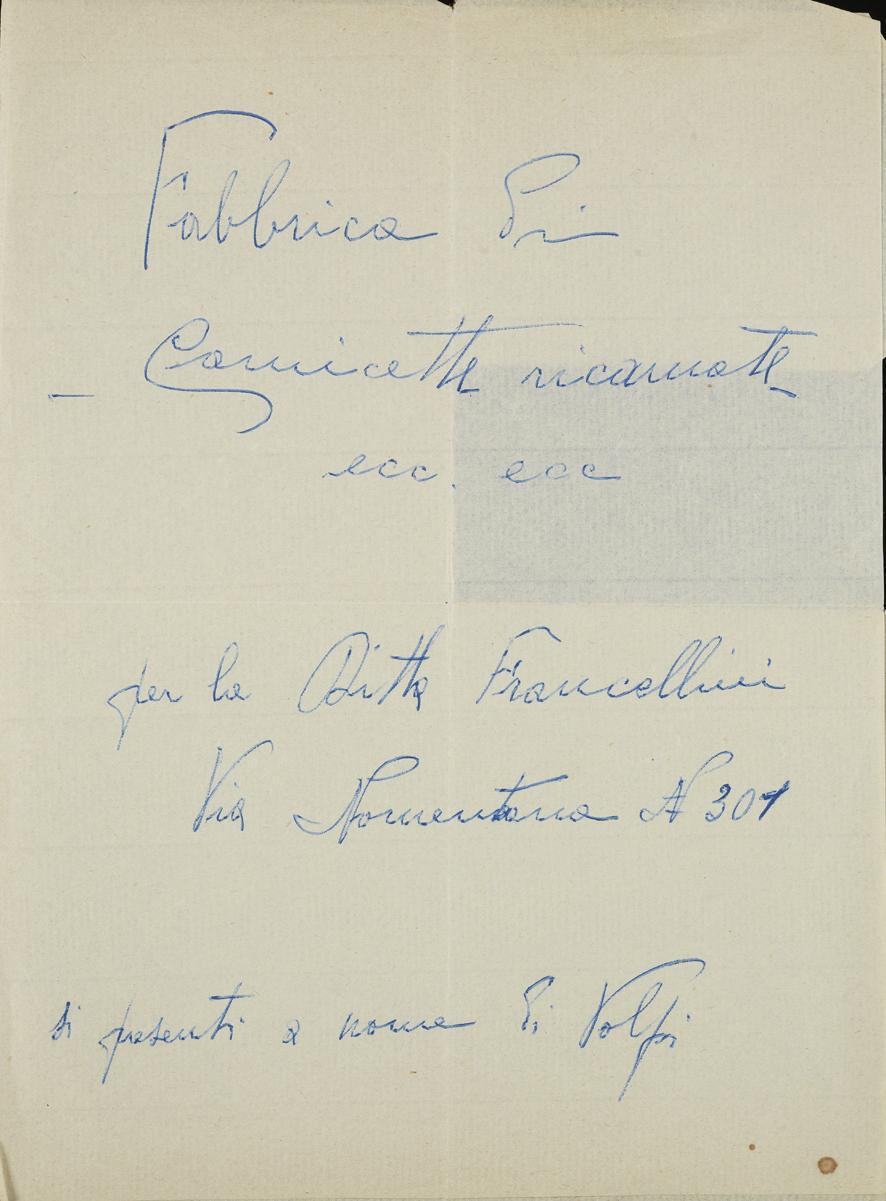 Fabbrica di
- Camicette ricamate
ecc. ecc
per la Ditta Francellini
Via Nomentana N 301
si presenti a nome di Volpi